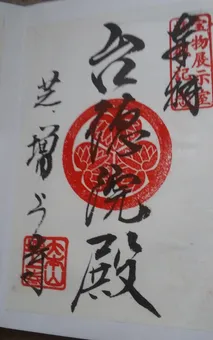 奉拝
宝物展示室
台徳院殿
芝 増上寺